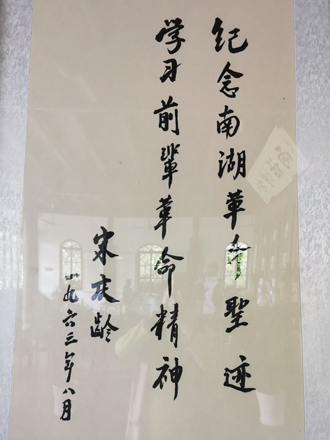 纪念南湖革命聖迹
学习前輩革命精神
宋庆龄
一九六三年八月